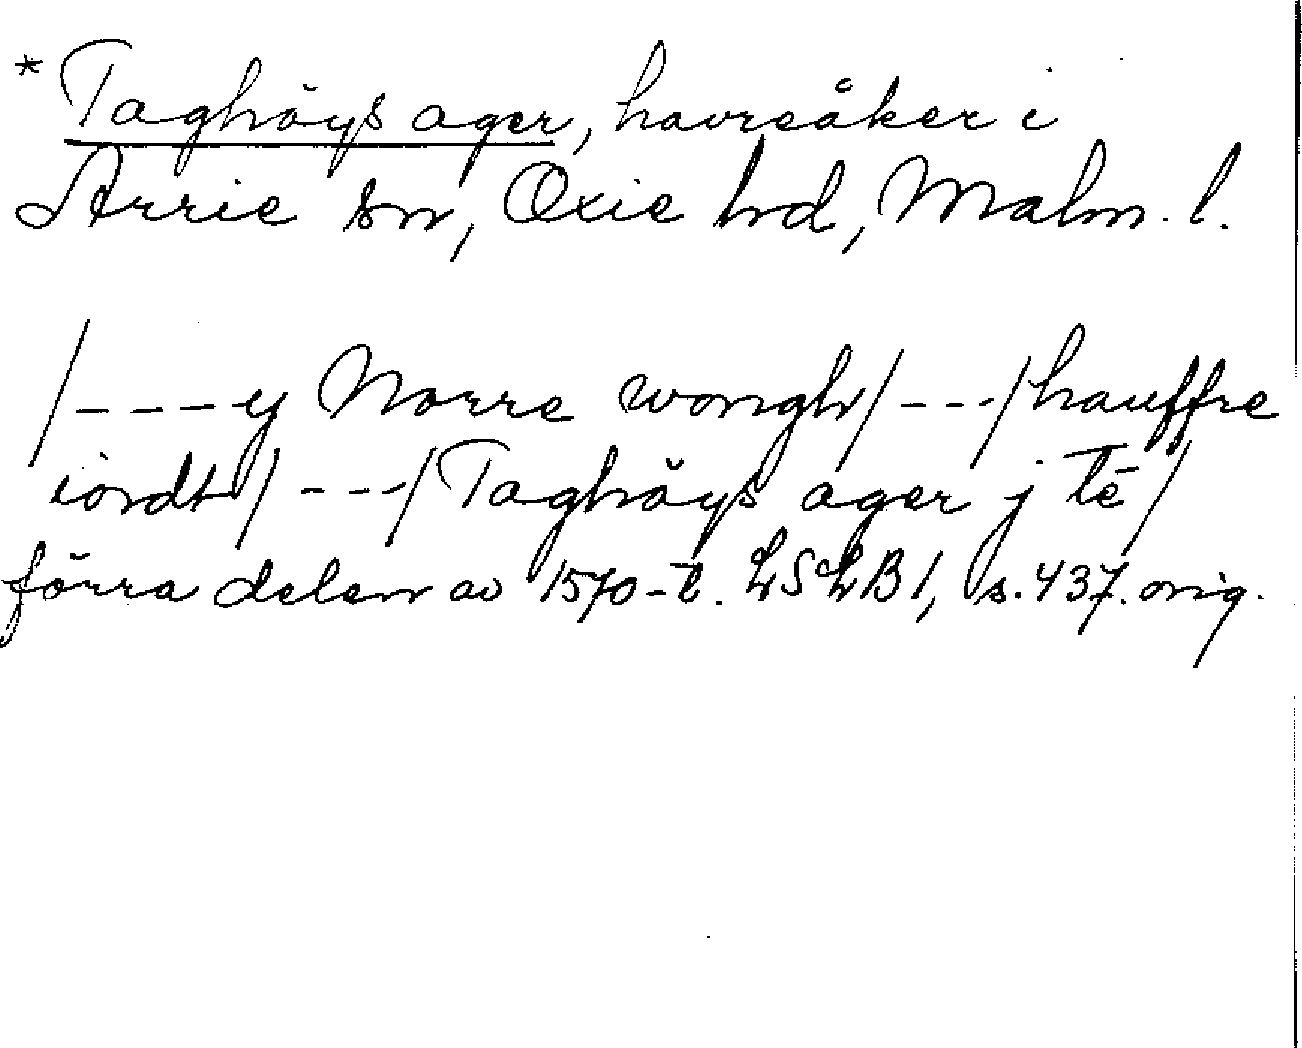 * Taghöys ager, havreåker i
Arrie sn, Oxie hd, Malm. l.
/---y Norre wongh/---/hauffre
iordt/---/Taghöys ager j tē/
förra delen av 1570-t. LSLB1, s. 437. orig.